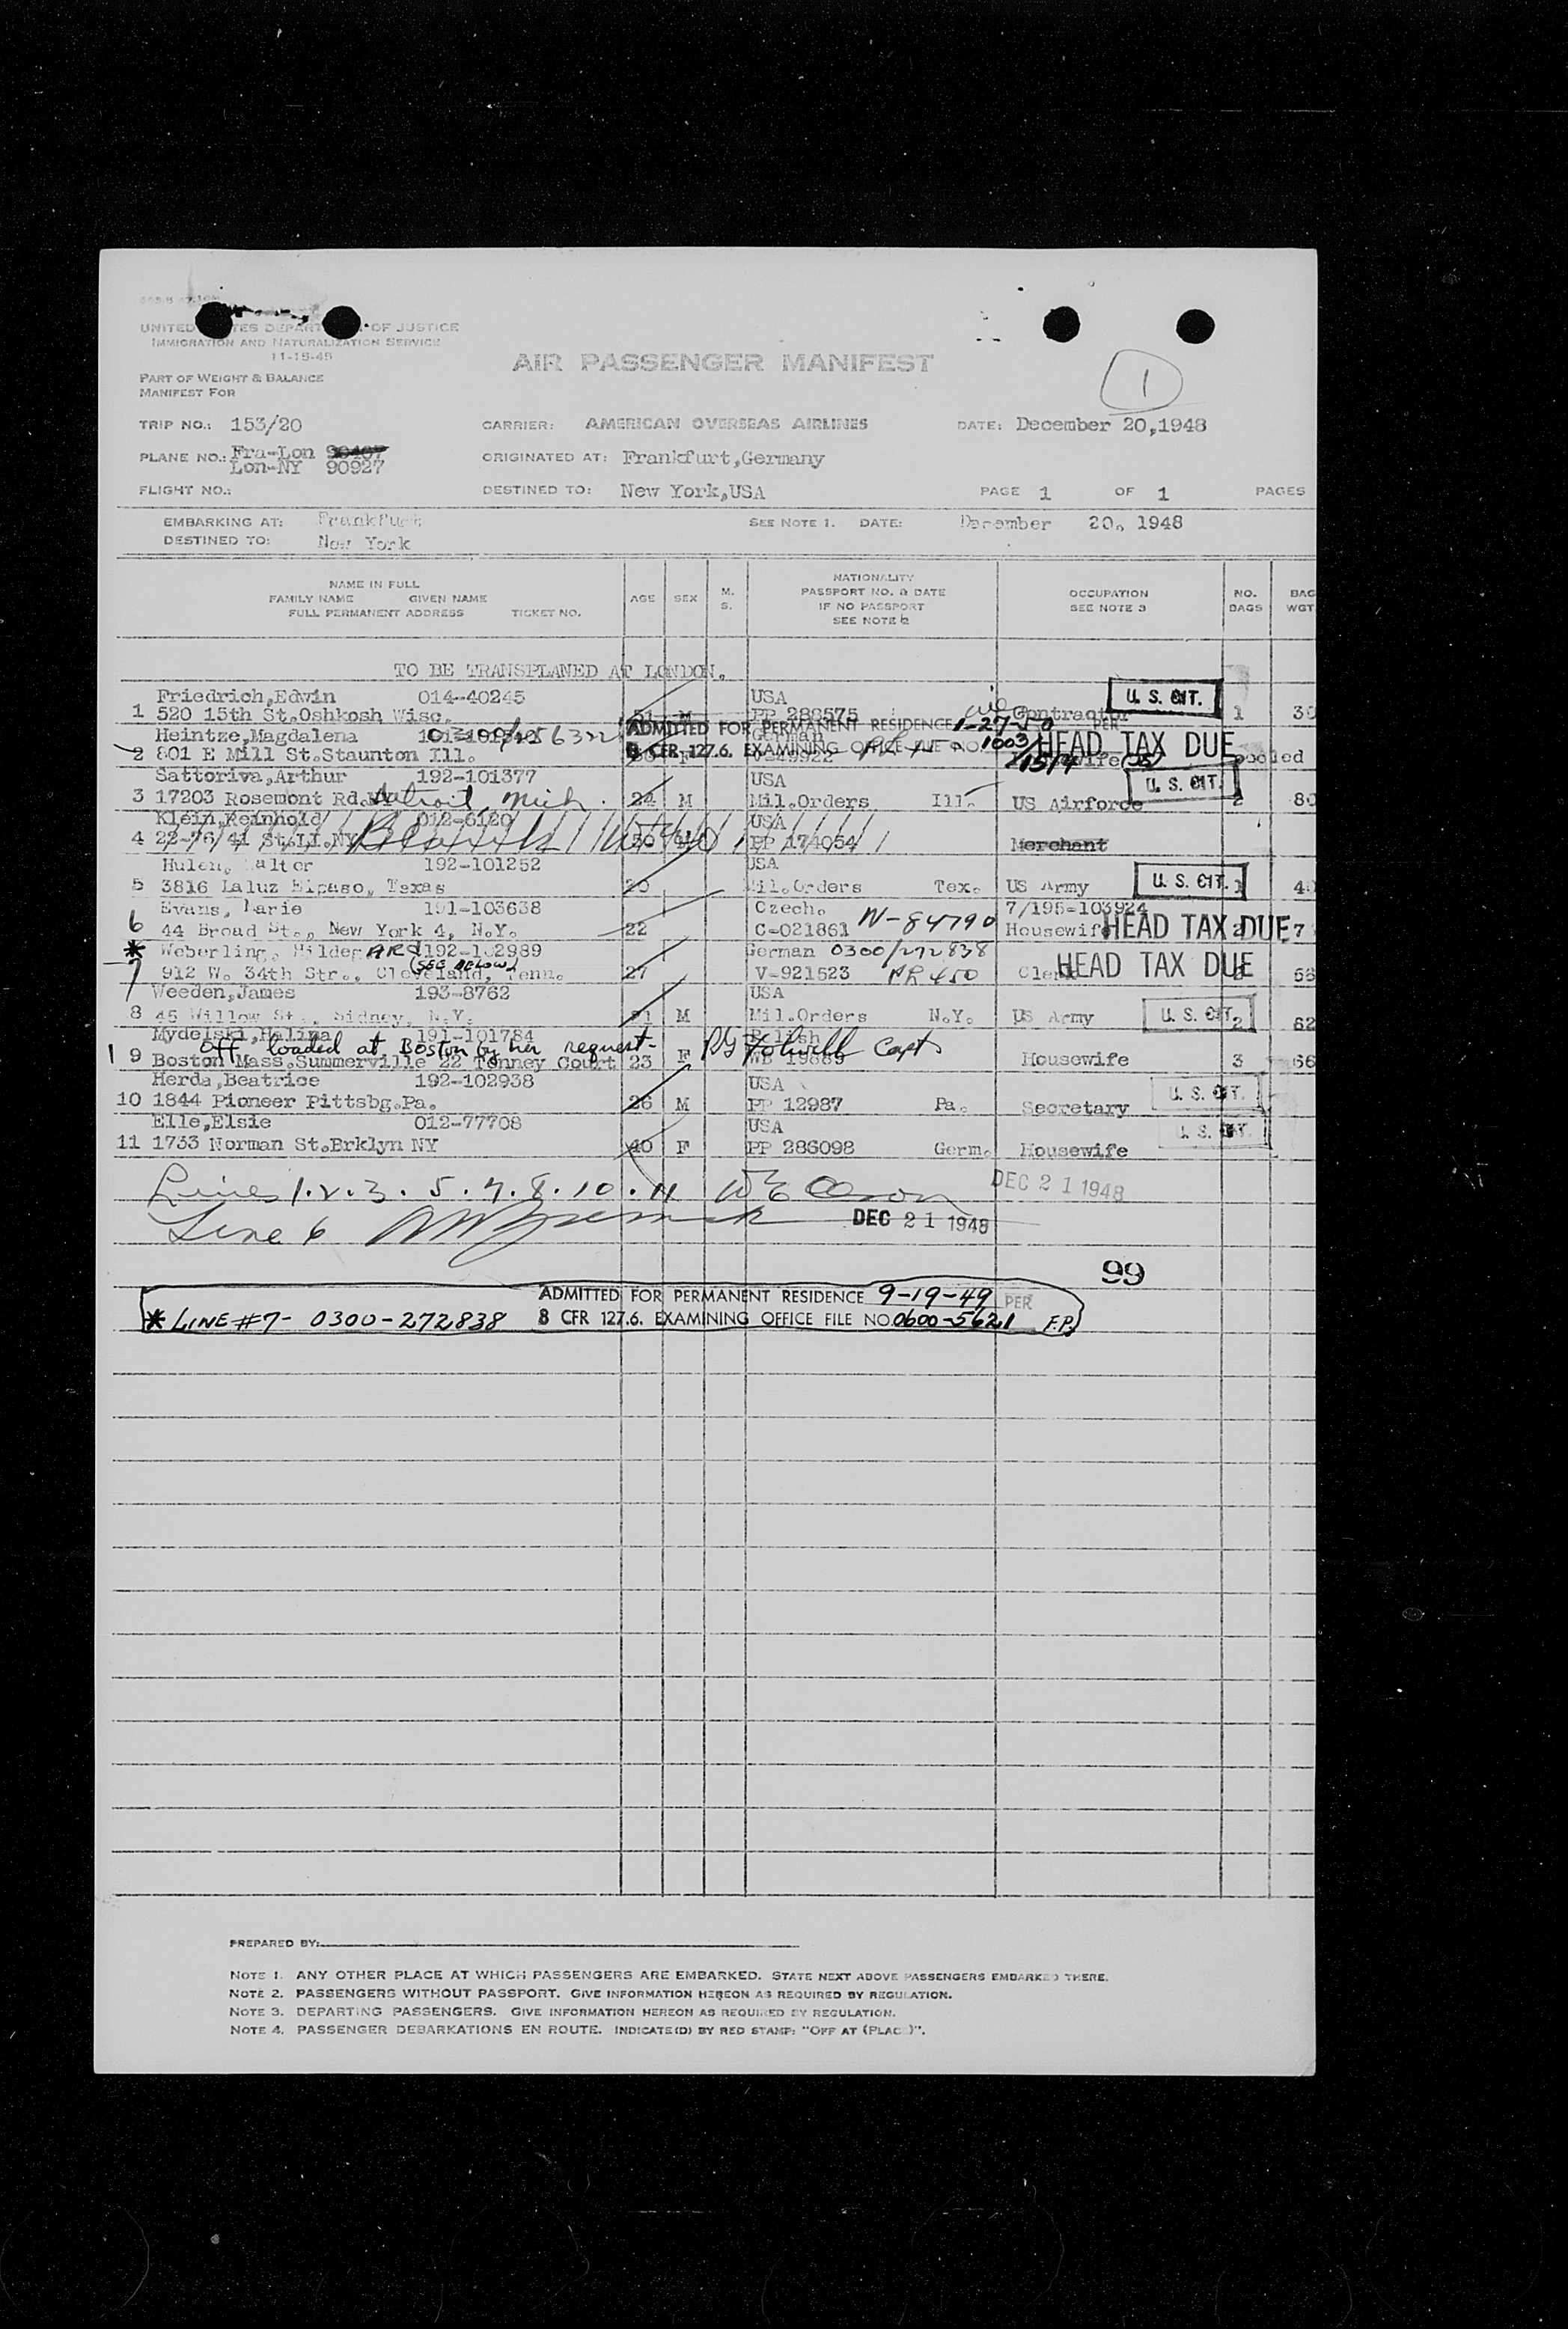 UNITED STATES DEPARTMENT OF JUSTICE
IMMIGRATION AND NATURALIZATION SERVICE
11-15-45
AIR PASSENGER MANIFEST
1
PART OF WEIGHT & BALANCE
MANIFEST FOR
TRIP NO.: 153/20 CARRIER: AMERICAN OVERSEAS AIRLINES DATE: December 20,1948
PLANE NO.: Fra-Lon 90407 ORIGINATED AT: Frankfurt,Germany
Lon-NY 90927
FLIGHT NO.: DESTINED TO: New York,USA PAGE 1 OF 1 PAGES
EMBARKING AT: Frankfurt SEE NOTE 1. DATE: December 20, 1948
DESTINED TO: New York
NAME IN FULL
FAMILY NAME GIVEN NAME
FULL PERMANENT ADDRESS TICKET NO.
AGE SEX M. S.
NATIONALITY
PASSPORT NO. & DATE
IF NO PASSPORT
SEE NOTE 2
OCCUPATION
SEE NOTE 3
NO. BAGS
BAG WGT
TO BE TRANSPLANED AT LONDON.
Friedrich,Edwin 014-40245 USA U. S. CIT.
1 520 15th St.Oshkosh Wisc. 51 M PP 288575 Contractor 1 30
ADMITTED FOR PERMANENT RESIDENCE 1-27-50 PER
Heintze,Magdalena German
8 CFR 127.6. EXAMINING OFFICE FILE NO. 1003/ HEAD TAX DUE
2 801 E Mill St.Staunton Ill. F V-49922 1514 pooled
Sattoriva,Arthur 192-101377 USA U. S. CIT.
3 17203 Rosemont Rd. Detroit, Mich. 24 M Mil.Orders Ill. US Airforce 2 80
Klein,Reinhold 012-6120 USA
4 22-76/41 St.LI.NY 50 M PP 174054 Merchant
Hulen, Walter 192-101252 USA U. S. CIT.
5 3816 Laluz Elpaso, Texas 20 Mil.Orders Tex. US Army 1 40
Evans, Marie 191-103638 Czech. 7/195-103924
6 44 Broad St., New York 4, N.Y. 22 C-021861 N-84790 Housewife HEAD TAX DUE 2 7
* Weberling, HildegARd 192-102989 German 0300/272838
(SEE BELOW)
7 912 W. 34th Str., Cleveland, Tenn. 27 V-921523 AR 450 Clerk HEAD TAX DUE 56
Weeden,James 193-8762 USA
8 45 Willow St., Sidney, N.Y. 21 M Mil.Orders N.Y. US Army U. S. CIT. 2 62
Mydelski,Halina 191-101784 Polish
off loaded at Boston by her request- Capt
9 Boston Mass.Summerville 22 Tenney Court 23 F Housewife 3 66
Herda,Beatrice 192-102938 USA U. S. CIT.
10 1844 Pioneer Pittsbg.Pa. 26 M PP 12987 Pa. Secretary
Elle,Elsie 012-77708 USA U. S. CIT.
11 1733 Norman St.Brklyn NY 40 F PP 286098 Germ. Housewife
Lines 1.2.3. 5.7.8.10.11 DEC 21 1948
Line 6 DEC 21 1948
99
ADMITTED FOR PERMANENT RESIDENCE 9-19-49 PER
* LINE #7- 0300-272838 8 CFR 127.6. EXAMINING OFFICE FILE NO. 0600-5621 F.P.
PREPARED BY:
NOTE 1. ANY OTHER PLACE AT WHICH PASSENGERS ARE EMBARKED. STATE NEXT ABOVE PASSENGERS EMBARKED THERE.
NOTE 2. PASSENGERS WITHOUT PASSPORT. GIVE INFORMATION HEREON AS REQUIRED BY REGULATION.
NOTE 3. DEPARTING PASSENGERS. GIVE INFORMATION HEREON AS REQUIRED BY REGULATION.
NOTE 4. PASSENGER DEBARKATIONS EN ROUTE. INDICATE(D) BY RED STAMP: "OFF AT (PLACE)".